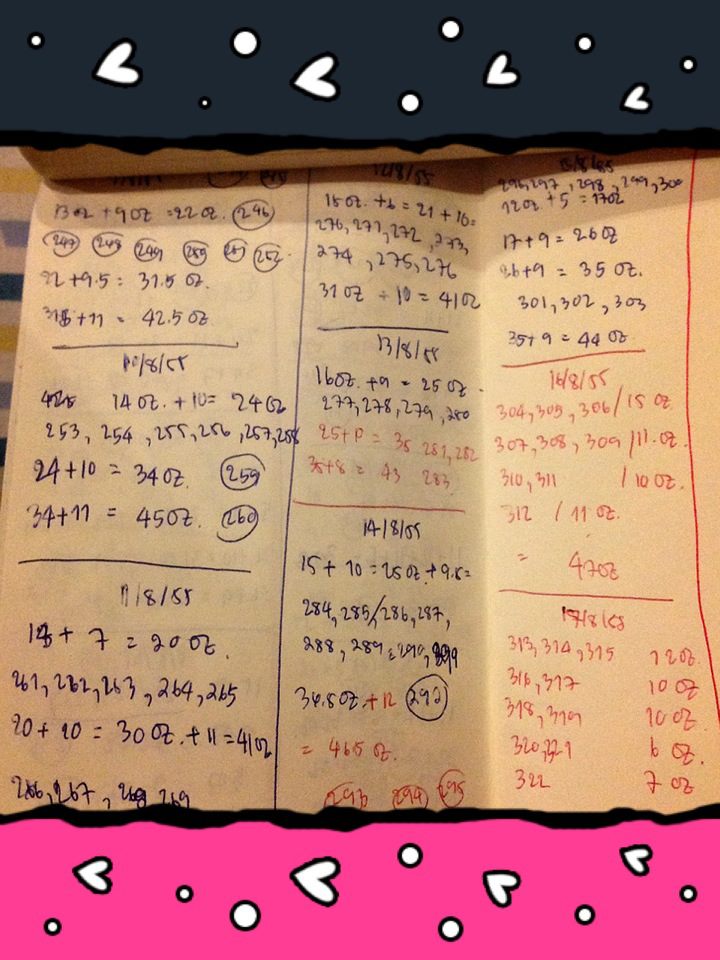 13oz + 9oz = 22oz. 246
247 248 249 250 251 252
22 + 9.5 = 31.5 oz.
31.5 + 11 = 42.5 oz
10/8/55
14oz. + 10 = 24oz
253, 254, 255, 256, 257, 258
24 + 10 = 34oz. 259
34 + 11 = 45oz. 260
11/8/55
13 + 7 = 20 oz.
261, 262, 263, 264, 265
20 + 10 = 30 oz. + 11 = 41oz
266, 267, 268 269
12/8/55
15oz. + 6 = 21 + 10 =
270, 271, 272, 273,
274, 275, 276
31oz + 10 = 41oz
13/8/55
16oz. + 9 = 25oz.
277, 278, 279, 280
25 + 10 = 35 281, 282
35 + 8 = 43 283
14/8/55
15 + 10 = 25oz + 9.5 =
284, 285/286, 287,
288, 289, 290, 291
34.5oz. + 12 292
= 46.5 oz.
293 294 295
15/8/55
296, 297, 298, 299, 300
12oz. + 5 = 17oz
17 + 9 = 26oz
26 + 9 = 35 oz.
301, 302, 303
35 + 9 = 44 oz
16/8/55
304, 305, 306 / 15 oz
307, 308, 309 / 11 oz.
310, 311 / 10 oz.
312 / 11 oz.
= 47oz
17/8/55
313, 314, 315 12oz.
316, 317 10 oz
318, 319 10 oz.
320, 321 6 oz.
322 7 oz